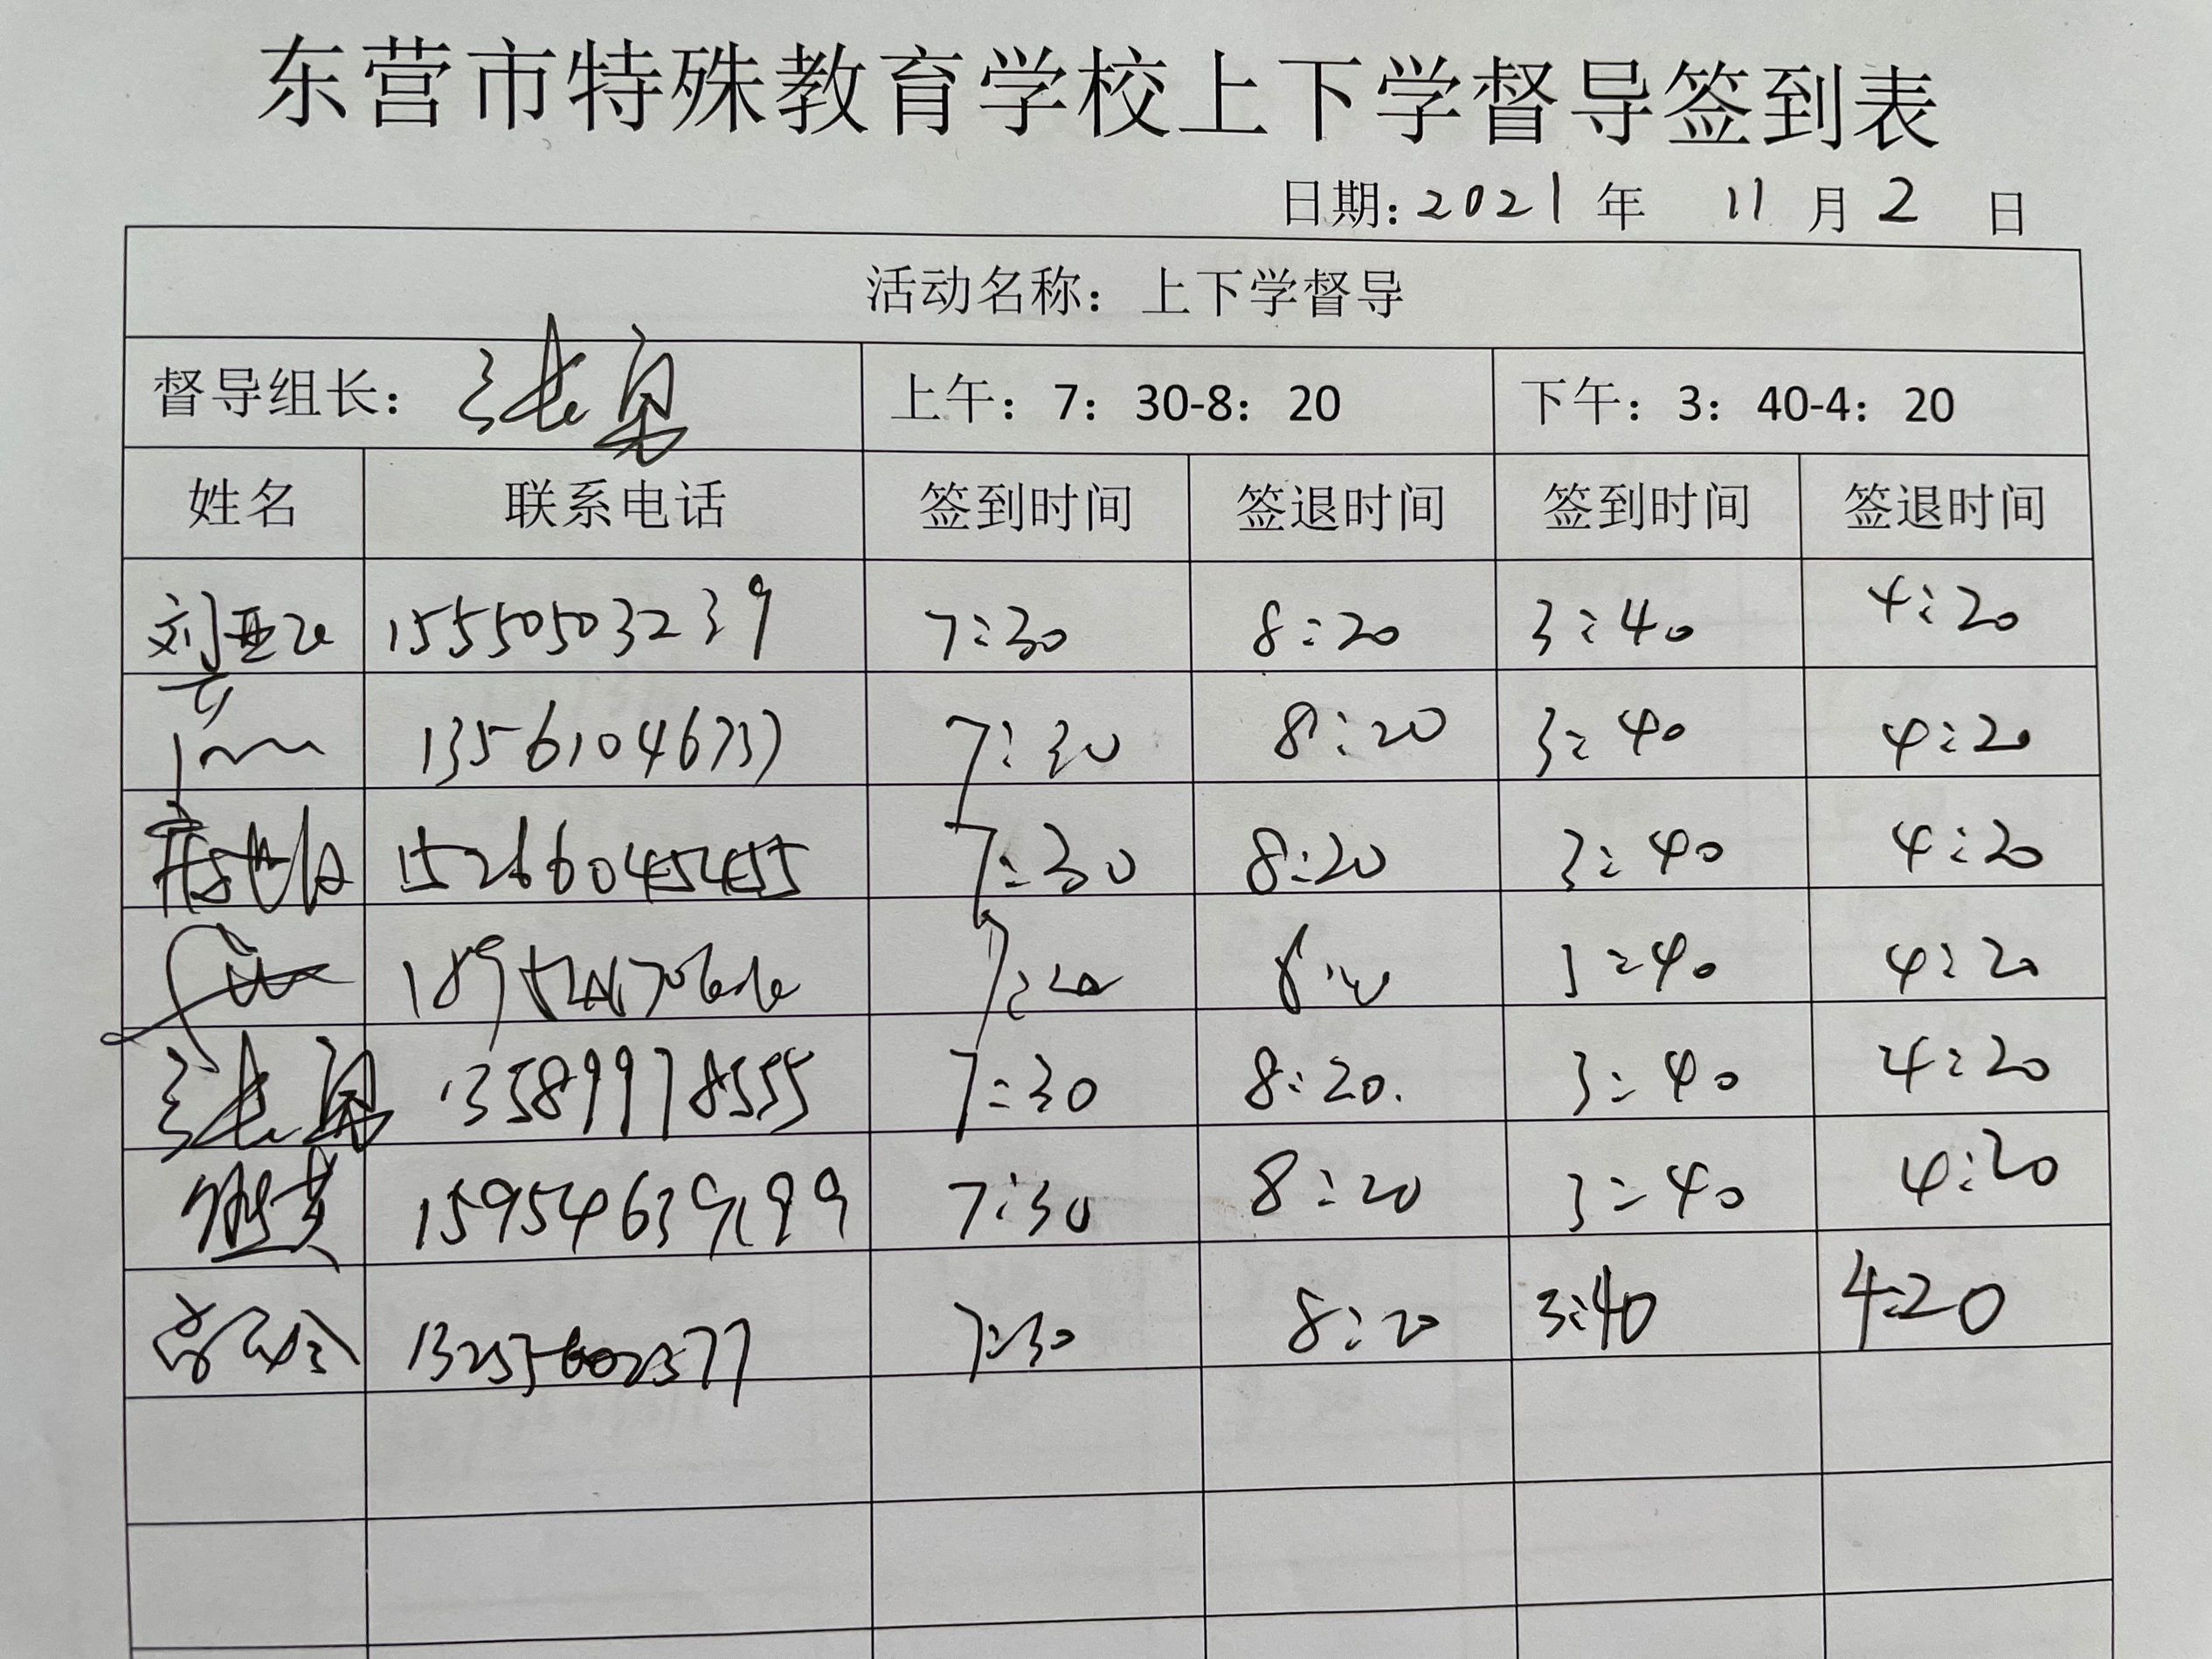 东营市特殊教育学校上下学督导签到表
日期:2021年 11月2 日
活动名称：上下学督导
督导组长： 上午：7：30-8：20 下午：3：40-4：20
姓名 联系电话 签到时间 签退时间 签到时间 签退时间
刘亚飞 15550503239 7:30 8:20 3:40 4:20
13561046737 7:30 8:20 3:40 4:20
15266045455 7:30 8:20 3:40 4:20
3:40 4:20
13589978555 7:30 8:20. 3:40 4:20
15954639199 7:30 8:20 3:40 4:20
7:30 8:20 3:40 4:20